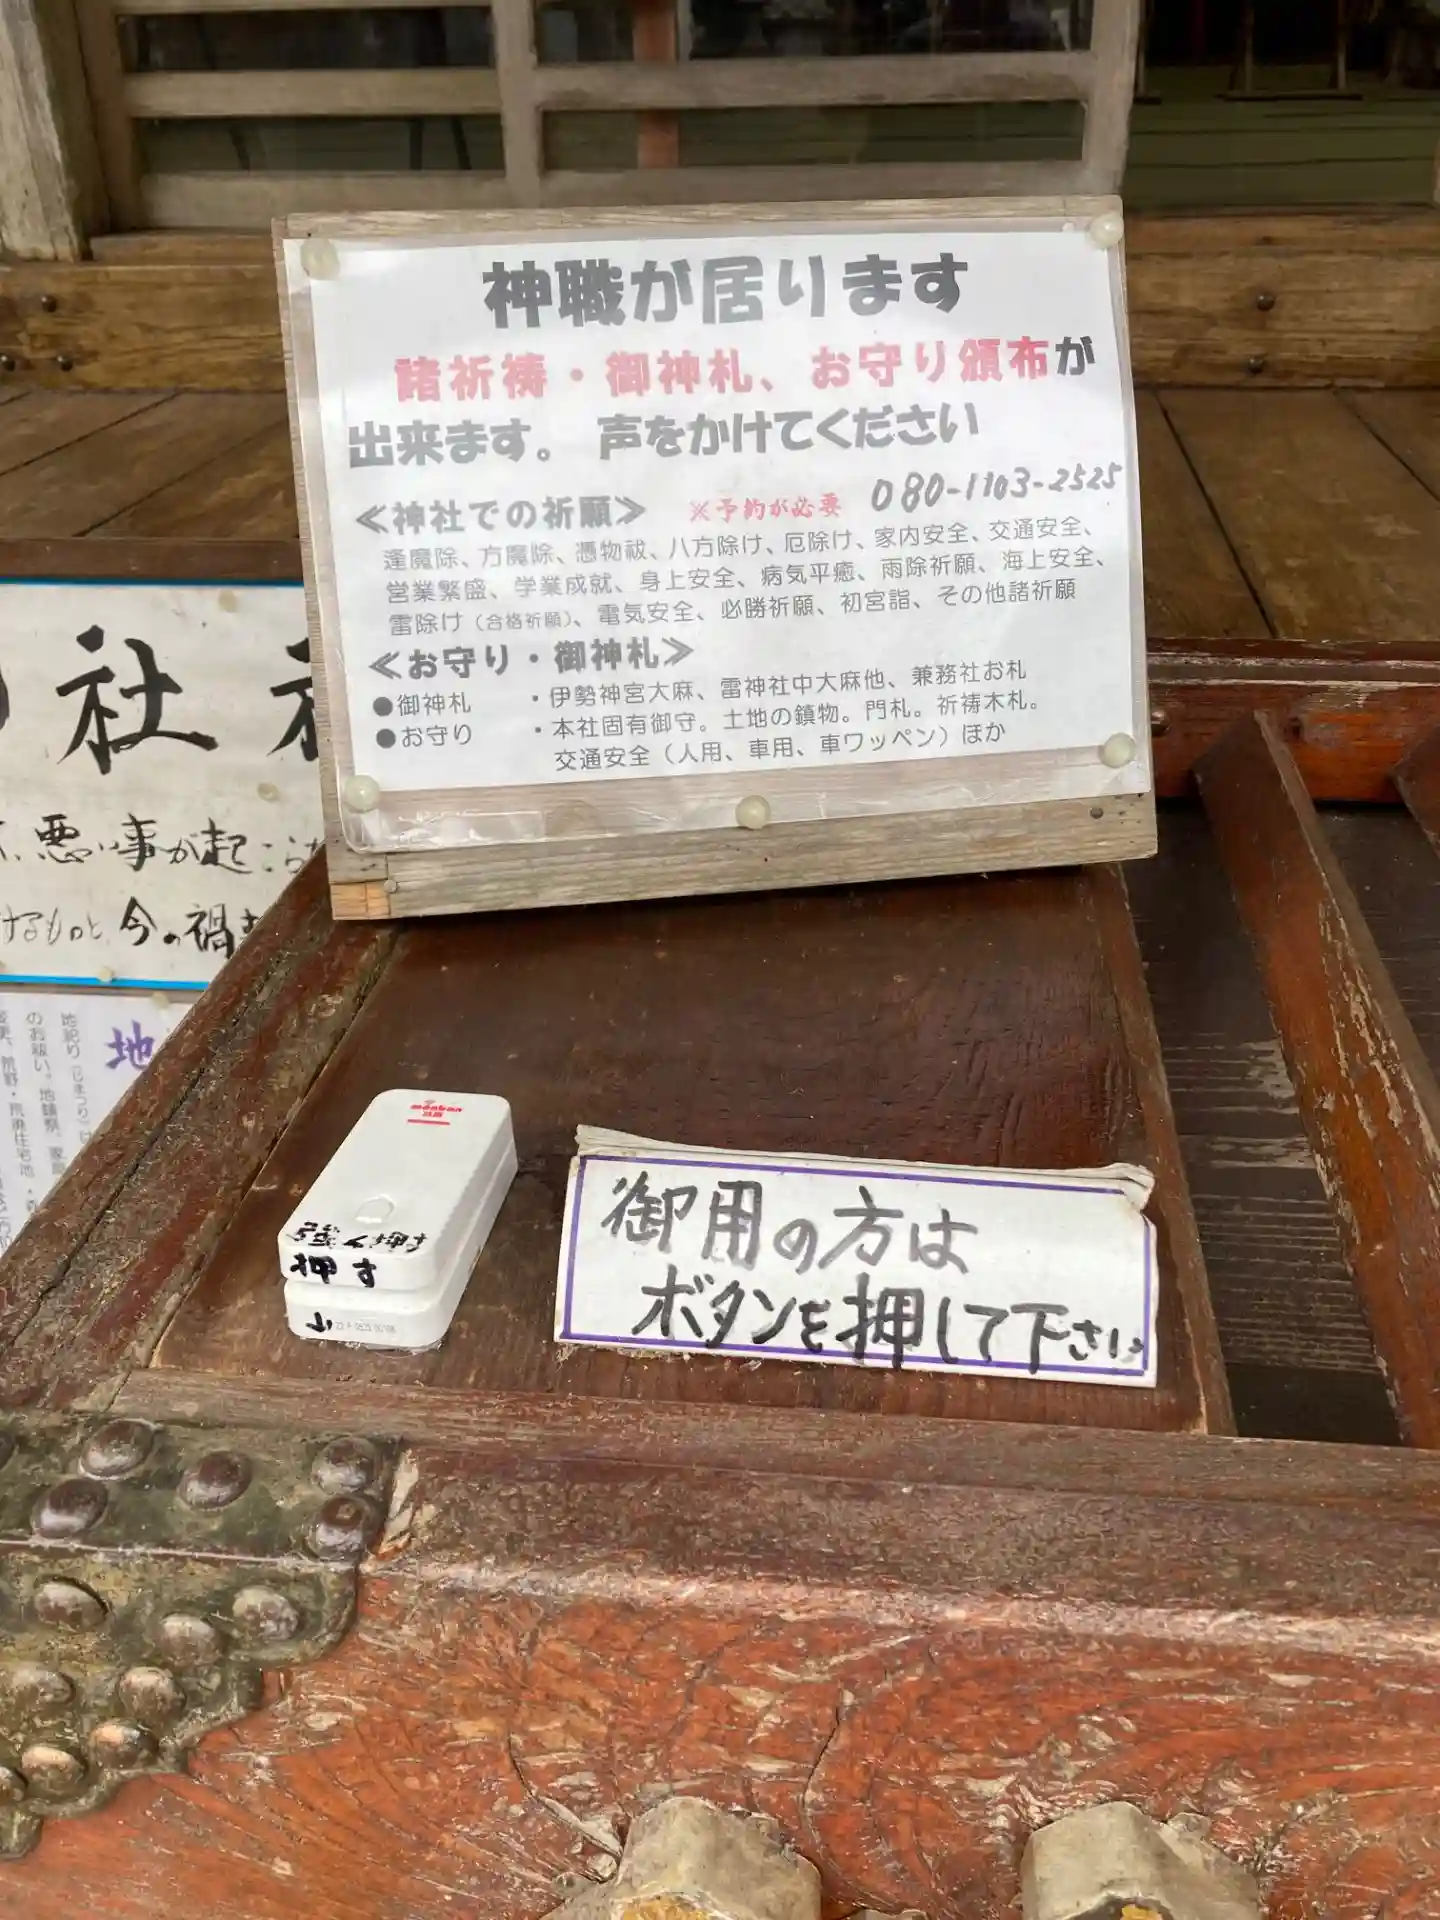 神職が居ります
諸祈祷・御神札、お守り頒布が
出来ます。 声をかけてください
≪神社での祈願≫ ※予約が必要 080-1103-2525
逢魔除、方魔除、憑物祓、八方除け、厄除け、家内安全、交通安全、
営業繁盛、学業成就、身上安全、病気平癒、雨除祈願、海上安全、
雷除け（合格祈願）、電気安全、必勝祈願、初宮詣、その他諸祈願
≪お守り・御神札≫
●御神札 ・伊勢神宮大麻、雷神社中大麻他、兼務社お札
●お守り ・本社固有御守。土地の鎮物。門札。祈祷木札。
交通安全（人用、車用、車ワッペン）ほか
社
悪い事が起こら
けるもっと今の禍
地
地祀り（じまつり）
のお祓い。地鎮祭、家
荒野・荒廃住宅地・
monban
強く押す
押す
御用の方は
ボタンを押して下さい